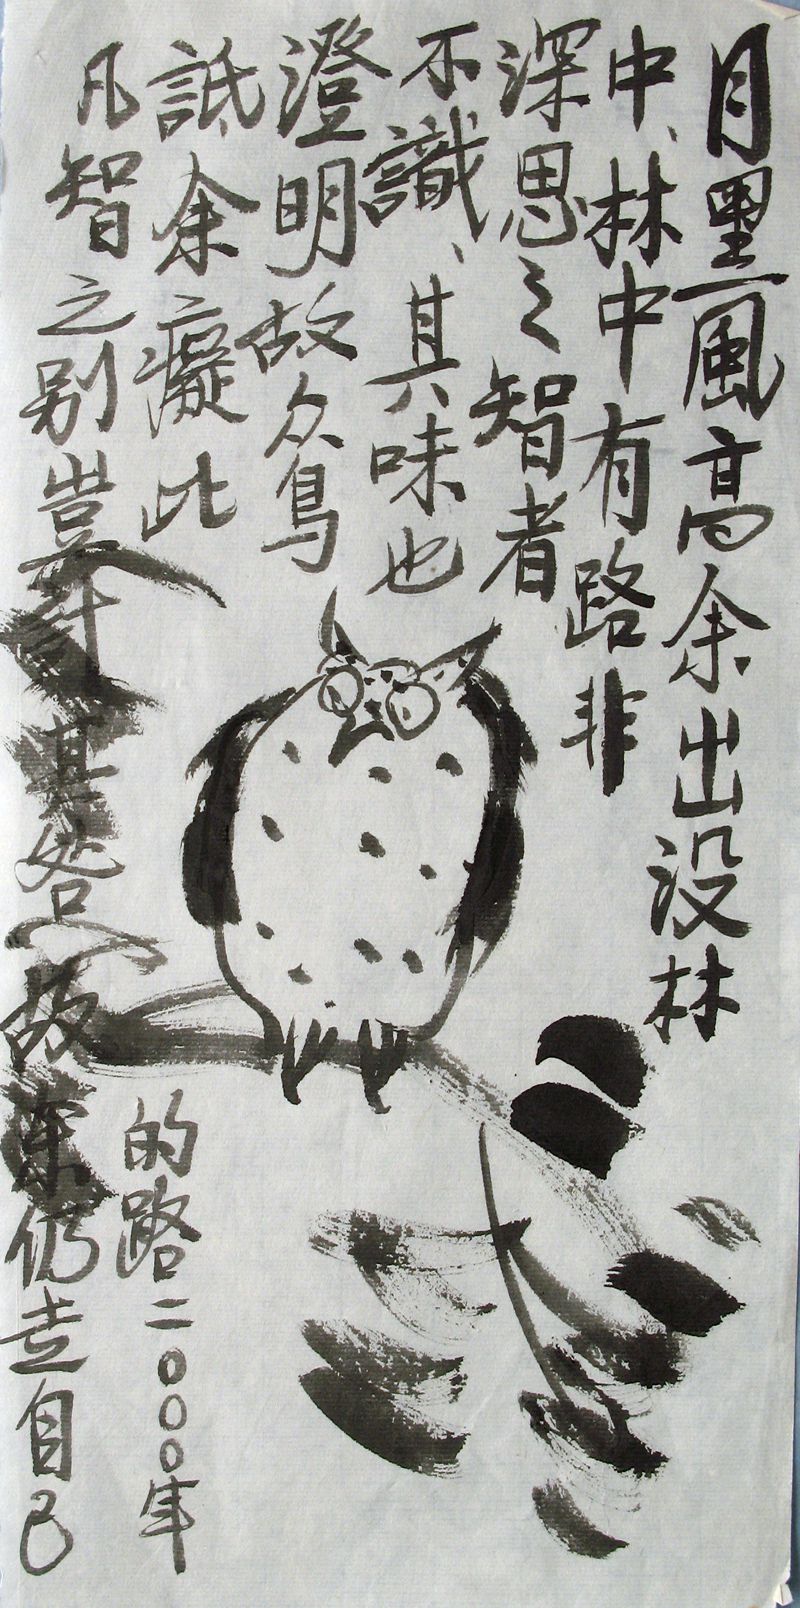 月黑風高余出没林
中、林中有路非
深思之智者
不識、其味也
澄明故众鳥
詆余癡此
凡智之别豈計其咎故仍走自己
的路二〇〇〇年